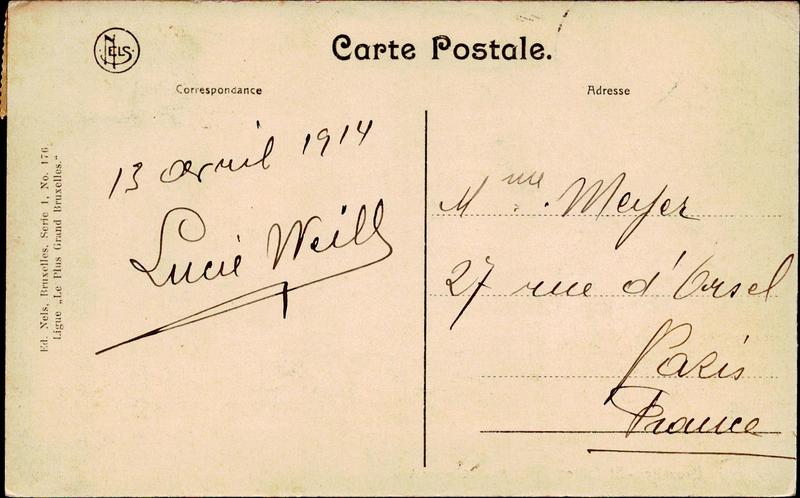 NELS
Carte Postale.
Correspondance
Adresse
Ed. Nels, Bruxelles, Serie 1, No. 176
Ligue „Le Plus Grand Bruxelles.“
13 avril 1914
Lucie Weill
Mme. Meyer
27 rue d'Orsel
Paris
France